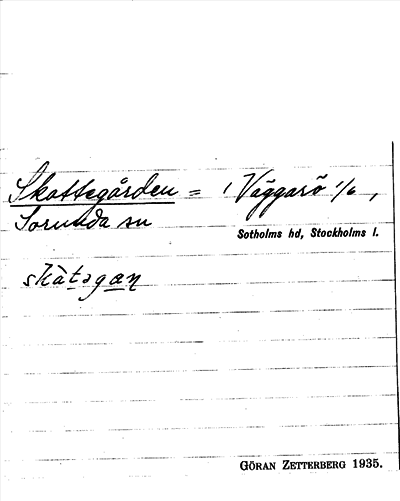 Skattegården = 1 Väggarö 1/6,
Sorunda sn
Sotholms hd, Stockholms l.
skàtəgæɳ
GÖRAN ZETTERBERG 1935.